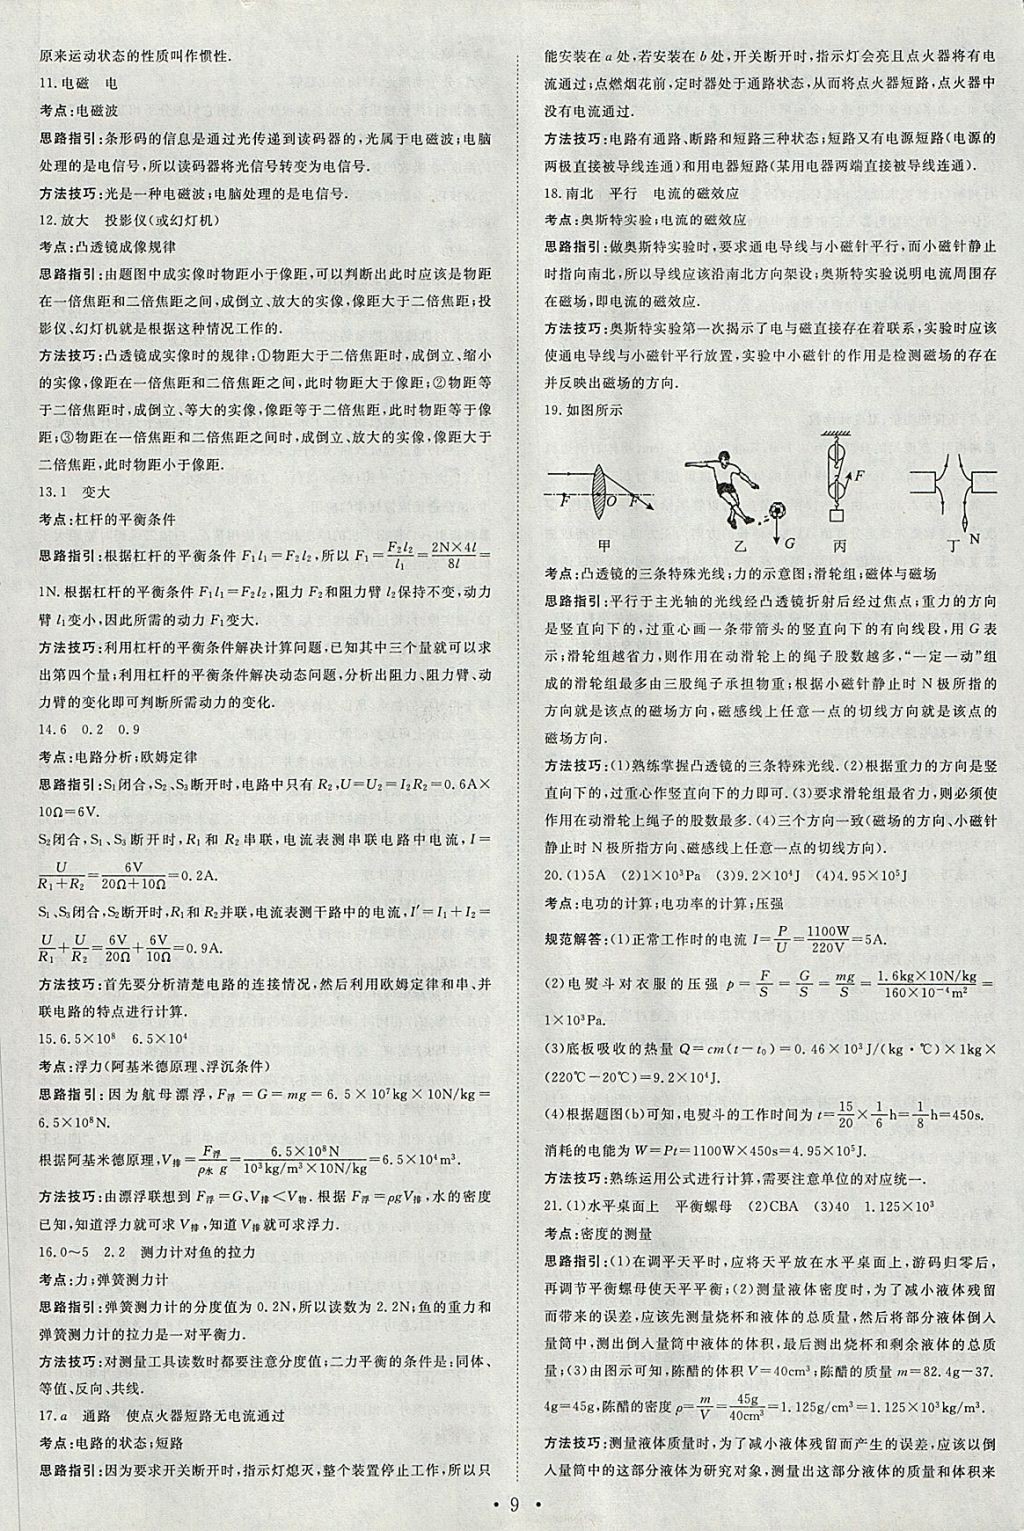 原来运动状态的性质叫作惯性.
11.电磁　电
考点:电磁波
思路指引:条形码的信息是通过光传递到读码器的,光属于电磁波;电脑
处理的是电信号,所以读码器将光信号转变为电信号.
方法技巧:光是一种电磁波;电脑处理的是电信号.
12.放大　投影仪(或幻灯机)
考点:凸透镜成像规律
思路指引:由题图中成实像时物距小于像距,可以判断出此时应该是物距
在一倍焦距和二倍焦距之间,成倒立、放大的实像,像距大于二倍焦距;投
影仪、幻灯机就是根据这种情况工作的.
方法技巧:凸透镜成实像时的规律:①物距大于二倍焦距时,成倒立、缩小
的实像,像距在一倍焦距和二倍焦距之间,此时物距大于像距;②物距等
于二倍焦距时,成倒立、等大的实像,像距等于二倍焦距,此时物距等于像
距;③物距在一倍焦距和二倍焦距之间时,成倒立、放大的实像,像距大于
二倍焦距,此时物距小于像距.
13.1　变大
考点:杠杆的平衡条件
思路指引:根据杠杆的平衡条件 F₁l₁=F₂l₂,所以 F₁=F₂l₂/l₁=2N×4l/8l=
1N.根据杠杆的平衡条件 F₁l₁=F₂l₂,阻力 F₂和阻力臂 l₂保持不变,动力
臂 l₁变小,因此所需的动力 F₁变大.
方法技巧:利用杠杆的平衡条件解决计算问题,已知其中三个量就可以求
出第四个量;利用杠杆的平衡条件解决动态问题,分析出阻力、阻力臂、动
力臂的变化即可判断所需动力的变化.
14.6　0.2　0.9
考点:电路分析;欧姆定律
思路指引:S₁闭合,S₂、S₃断开时,电路中只有 R₂,U=U₂=I₂R₂=0.6A×
10Ω=6V.
S₂闭合,S₁、S₃断开时,R₁和 R₂串联,电流表测串联电路中电流,I=
U/(R₁+R₂)=6V/(20Ω+10Ω)=0.2A.
S₁、S₃闭合,S₂断开时,R₁和 R₂并联,电流表测干路中的电流,I′=I₁+I₂=
U/R₁+U/R₂=6V/20Ω+6V/10Ω=0.9A.
方法技巧:首先要分析清楚电路的连接情况,然后利用欧姆定律和串、并
联电路的特点进行计算.
15.6.5×10⁸　6.5×10⁴
考点:浮力(阿基米德原理、浮沉条件)
思路指引:因为航母漂浮,F浮=G=mg=6.5×10⁷kg×10N/kg=
6.5×10⁸N.
根据阿基米德原理,V排=F浮/ρ水g=6.5×10⁸N/(10³kg/m³×10N/kg)=6.5×10⁴m³.
方法技巧:由漂浮联想到 F浮=G、V排<V物.根据 F浮=ρgV排,水的密度
已知,知道浮力就可求 V排,知道 V排就可求浮力.
16.0～5　2.2　测力计对鱼的拉力
考点:力;弹簧测力计
思路指引:弹簧测力计的分度值为 0.2N,所以读数为 2.2N;鱼的重力和
弹簧测力计的拉力是一对平衡力.
方法技巧:对测量工具读数时都要注意分度值;二力平衡的条件是:同体、
等值、反向、共线.
17.a　通路　使点火器短路无电流通过
考点:电路的状态;短路
思路指引:因为要求开关断开时,指示灯熄灭,整个装置停止工作,所以只
能安装在 a 处,若安装在 b 处,开关断开时,指示灯会亮且点火器将有电
流通过;点燃烟花前,定时器处于通路状态,从而将点火器短路,点火器中
没有电流通过.
方法技巧:电路有通路、断路和短路三种状态;短路又有电源短路(电源的
两极直接被导线连通)和用电器短路(某用电器两端直接被导线连通).
18.南北　平行　电流的磁效应
考点:奥斯特实验;电流的磁效应
思路指引:做奥斯特实验时,要求通电导线与小磁针平行,而小磁针静止
时指向南北,所以导线应该沿南北方向架设;奥斯特实验说明电流周围存
在磁场,即电流的磁效应.
方法技巧:奥斯特实验第一次揭示了电与磁直接存在着联系,实验时应该
使通电导线与小磁针平行放置,实验中小磁针的作用是检测磁场的存在
并反映出磁场的方向.
19.如图所示
F　O　F
甲
G
乙
F
丙
N
丁
考点:凸透镜的三条特殊光线;力的示意图;滑轮组;磁体与磁场
思路指引:平行于主光轴的光线经凸透镜折射后经过焦点;重力的方向
是竖直向下的,过重心画一条带箭头的竖直向下的有向线段,用 G 表
示;滑轮组越省力,则作用在动滑轮上的绳子股数越多,“一定一动”组
成的滑轮组最多由三股绳子承担物重;根据小磁针静止时 N 极所指的
方向就是该点的磁场方向,磁感线上任意一点的切线方向就是该点的
磁场方向.
方法技巧:(1)熟练掌握凸透镜的三条特殊光线.(2)根据重力的方向是竖
直向下的,过重心作竖直向下的力即可.(3)要求滑轮组最省力,则必须使
作用在动滑轮上绳子的股数最多.(4)三个方向一致(磁场的方向、小磁针
静止时 N 极所指方向、磁感线上任意一点的切线方向).
20.(1)5A　(2)1×10³Pa　(3)9.2×10⁴J　(4)4.95×10⁵J
考点:电功的计算;电功率的计算;压强
规范解答:(1)正常工作时的电流 I=P/U=1100W/220V=5A.
(2)电熨斗对衣服的压强 p=F/S=G/S=mg/S=1.6kg×10N/kg/160×10⁻⁴m²=
1×10³Pa.
(3)底板吸收的热量 Q=cm(t-t₀)=0.46×10³J/(kg·℃)×1kg×
(220℃-20℃)=9.2×10⁴J.
(4)根据题图(b)可知,电熨斗的工作时间为 t=15/20×1/6h=1/8h=450s.
消耗的电能为 W=Pt=1100W×450s=4.95×10⁵J.
方法技巧:熟练运用公式进行计算,需要注意单位的对应统一.
21.(1)水平桌面上　平衡螺母　(2)CBA　(3)40　1.125×10³
考点:密度的测量
思路指引:(1)在调平天平时,应将天平放在水平桌面上,游码归零后,
再调节平衡螺母使天平平衡;(2)测量液体密度时,为了减小液体残留
而带来的误差,应该先测量烧杯和液体的总质量,然后将部分液体倒入
量筒中,测出倒入量筒中液体的体积,最后测出烧杯和剩余液体的总质
量;(3)由图示可知,陈醋的体积 V=40cm³,陈醋的质量 m=82.4g-37.
4g=45g,陈醋的密度 ρ=m/V=45g/40cm³=1.125g/cm³=1.125×10³kg/m³.
方法技巧:测量液体质量时,为了减小液体残留而产生的误差,应该以倒
入量筒中的这部分液体为研究对象,测量出这部分液体的质量和体积来
• 9 •